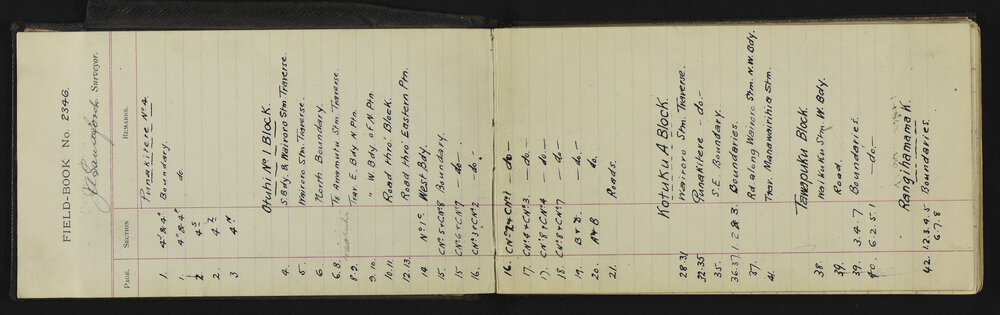 FIELD-BOOK No. 2346.
Surveyor.
PAGE. SECTION REMARKS.
Punakitere No 4.
1. Boundary.
1. do
2.
2.
3
Otuhi No 1 Block.
4. S. Bdy. & Wairoro Stm Traverse
5. Wairoro Stm. Traverse.
6. North Boundary.
6.8. Te Amamutu Stm. Traverse
8.9. Trav E. Bdy N. Ptn.
9.10. " W. Bdy. of N. Ptn
10.11. Road thro' Block.
12.13. Road thro' Eastern Ptn.
14. No 1 C West Bdy.
15. CNo 5 & CNo 8 Boundary.
15 CNo 6 & CNo 7 - do -
16. CNo 3 & CNo 2 - do.
16. CNo 2 & CNo 1 - do -
17. CNo 4 & CNo 3. - do -
17. CNo 8 & CNo 4 - do -
18. CNo 8 & CNo 7 - do -
19. B & D. do.
20. A & B do.
21. Roads.
Kotuku A Block
28.31 Wairoro Stm. Traverse.
32.35 Punakitere - do -
35. S.E. Boundary.
36.37. 1. 2 & 3. Boundaries.
37. Rd along Wairoro Stm. N.W. Bdy.
41. Trav. Manawairihia Stm.
Tawapuku Block.
38. Waikuku Stm W. Bdy.
39. Road.
39. 3.4.7 Boundaries.
40. 6.2.5.1 - do -
Rangihamama K.
42. 1.2.3.4.5 Boundaries.
6.7.8